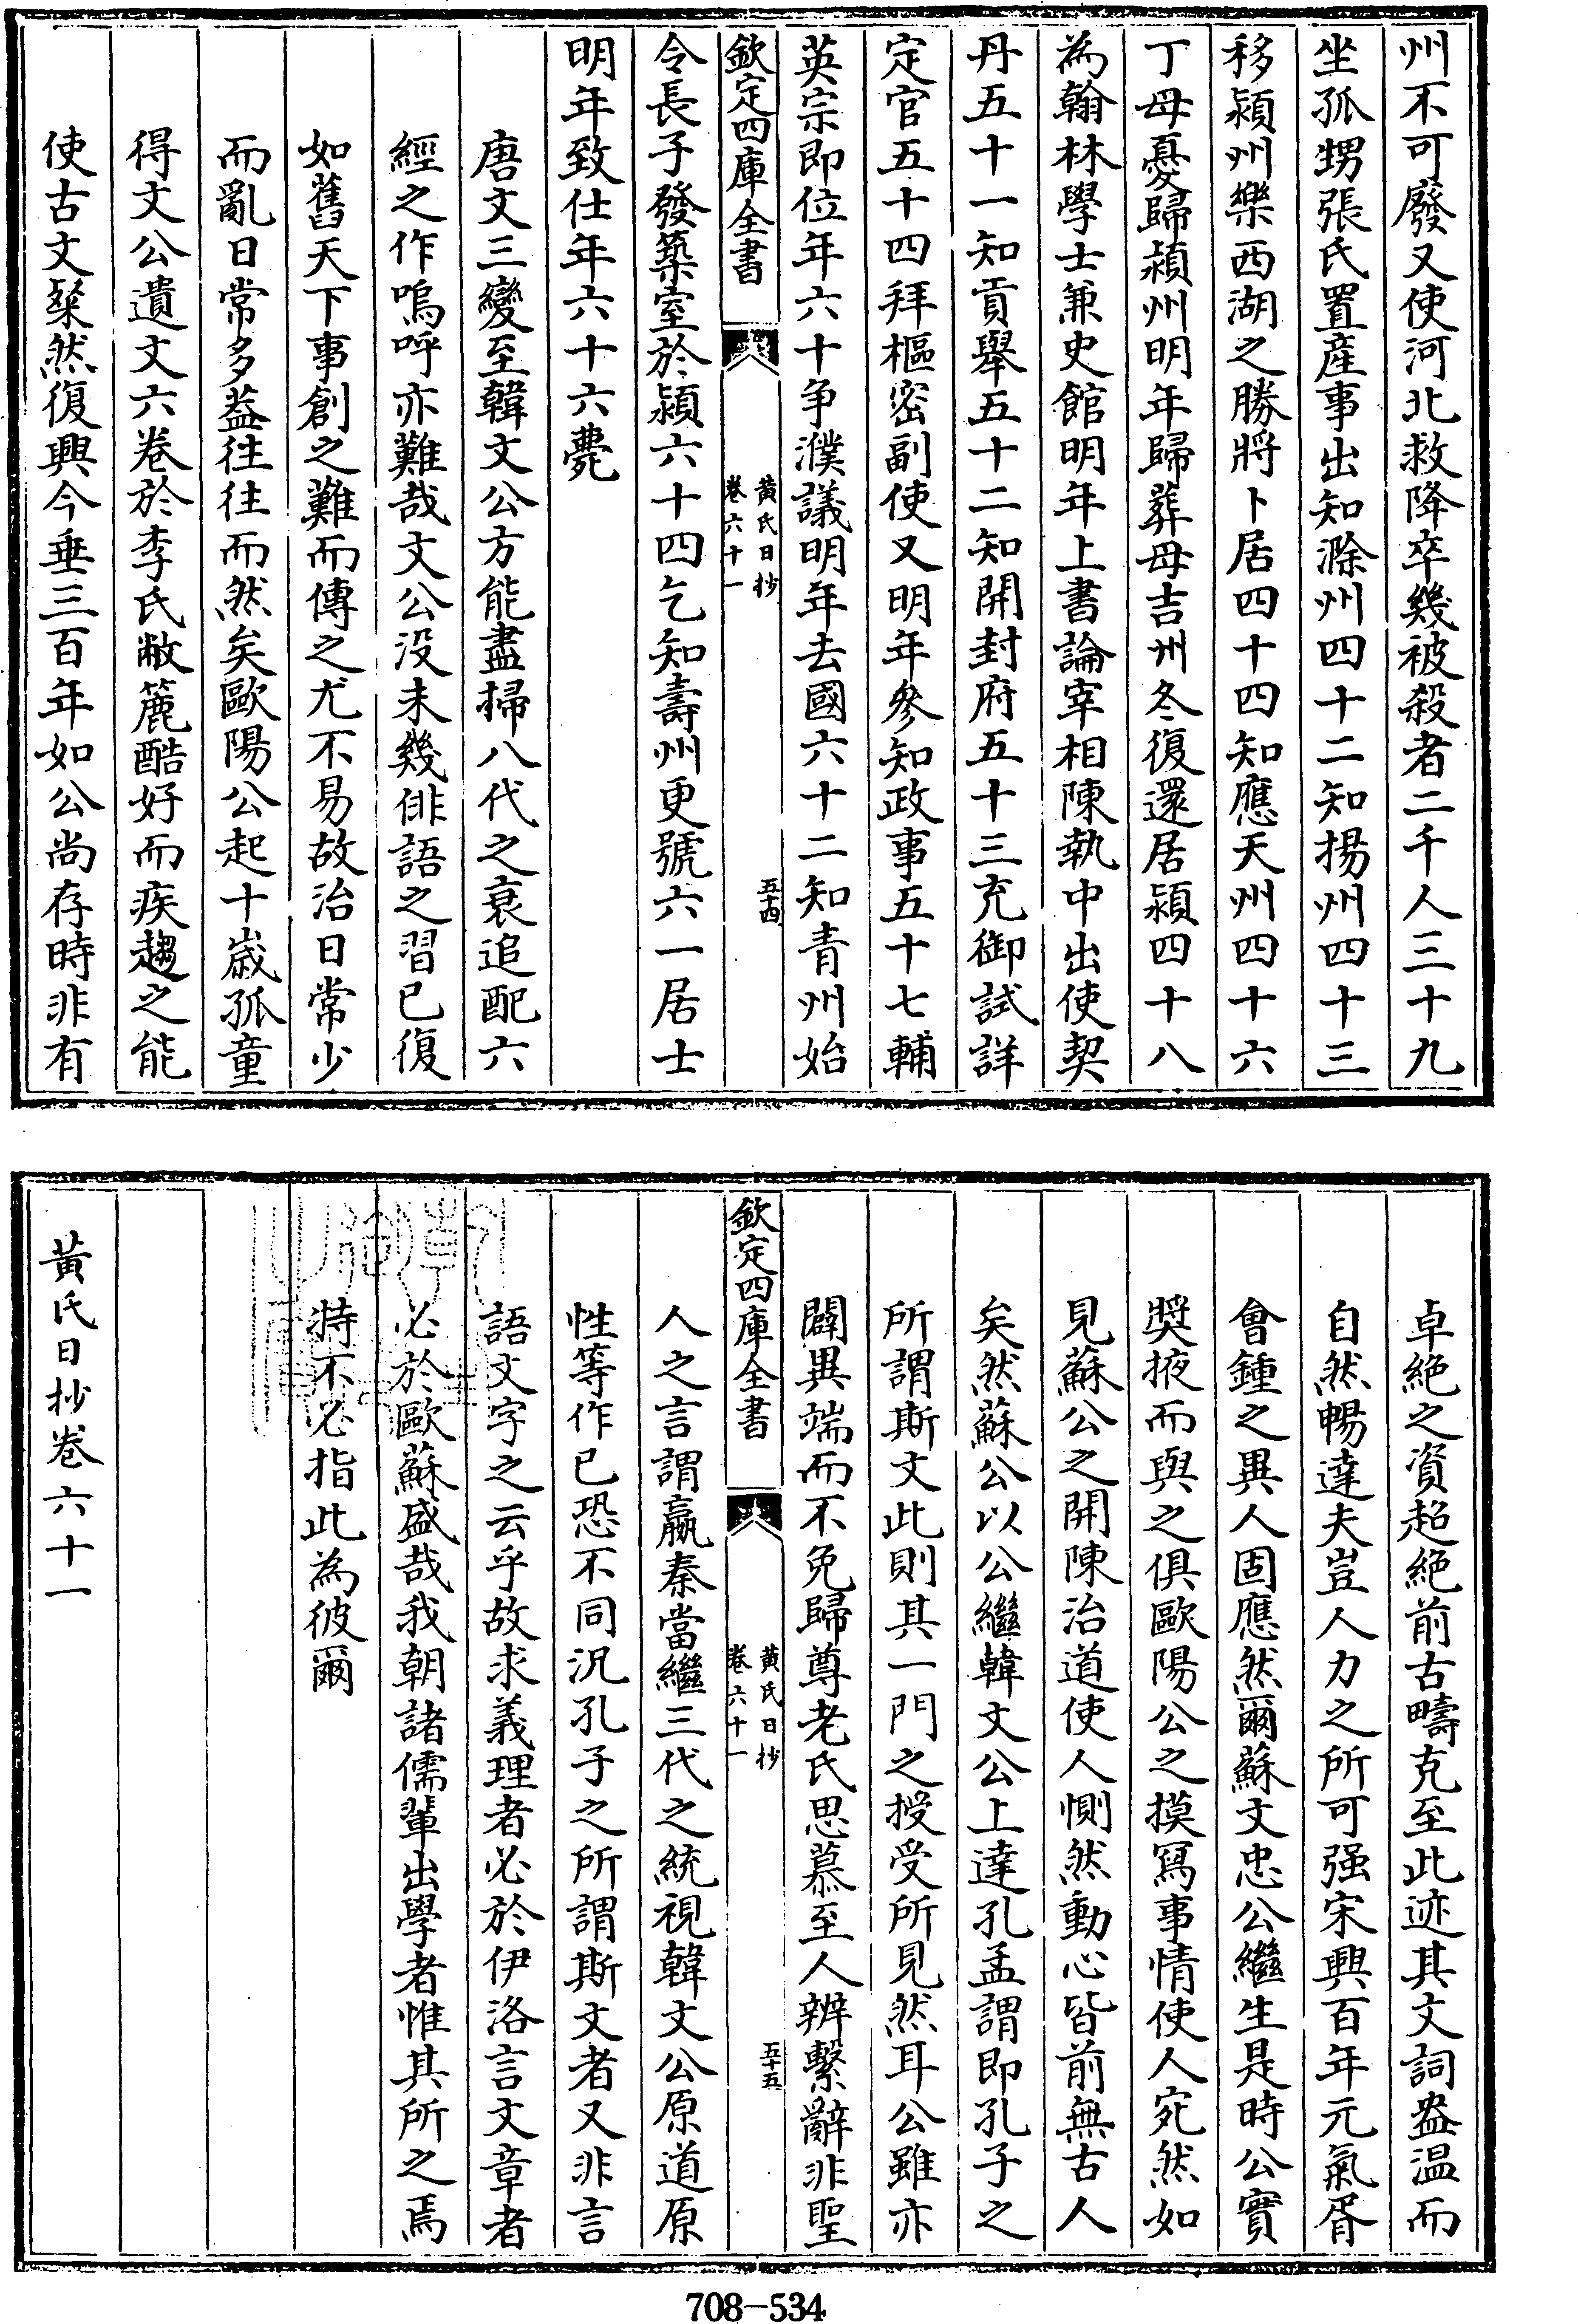 州不可廢又使河北救降卒幾被殺者二千人三十九
坐孤甥張氏置産事出知滁州四十二知揚州四十三
移潁州樂西湖之勝將卜居四十四知應天州四十六
丁母憂歸潁州明年歸葬母吉州冬復還居潁四十八
為翰林學士兼史館明年上書論宰相陳執中出使契
丹五十一知貢舉五十二知開封府五十三充御試詳
定官五十四拜樞密副使又明年參知政事五十七輔
英宗即位年六十争濮議明年去國六十二知青州始
欽定四庫全書
黃氏日抄
卷六十一
五十四
令長子發築室於潁六十四乞知壽州更號六一居士
明年致仕年六十六薨
唐文三變至韓文公方能盡掃八代之衰追配六
經之作嗚呼亦難哉文公没未幾俳語之習已復
如舊天下事創之難而傳之尤不易故治日常少
而亂日常多葢往往而然矣歐陽公起十嵗孤童
得文公遺文六卷於李氏敝簏酷好而疾趨之能
使古文粲然復興今垂三百年如公尚存時非有
卓絶之資超絶前古疇克至此迹其文詞盎温而
自然暢達夫豈人力之所可强宋興百年元氣胥
會鍾之異人固應然爾蘇文忠公繼生是時公實
奬掖而與之俱歐陽公之摸寫事情使人宛然如
見蘇公之開陳治道使人惻然動心皆前無古人
矣然蘇公以公繼韓文公上達孔孟謂即孔子之
所謂斯文此則其一門之授受所見然耳公雖亦
闢異端而不免歸尊老氏思慕至人辨繫辭非聖
欽定四庫全書
黃氏日抄
卷六十一
五十五
人之言謂嬴秦當繼三代之統視韓文公原道原
性等作已恐不同況孔子之所謂斯文者又非言
語文字之云乎故求義理者必於伊洛言文章者
必於歐蘇盛哉我朝諸儒輩出學者惟其所之焉
特不必指此為彼爾
黃氏日抄卷六十一
708-534